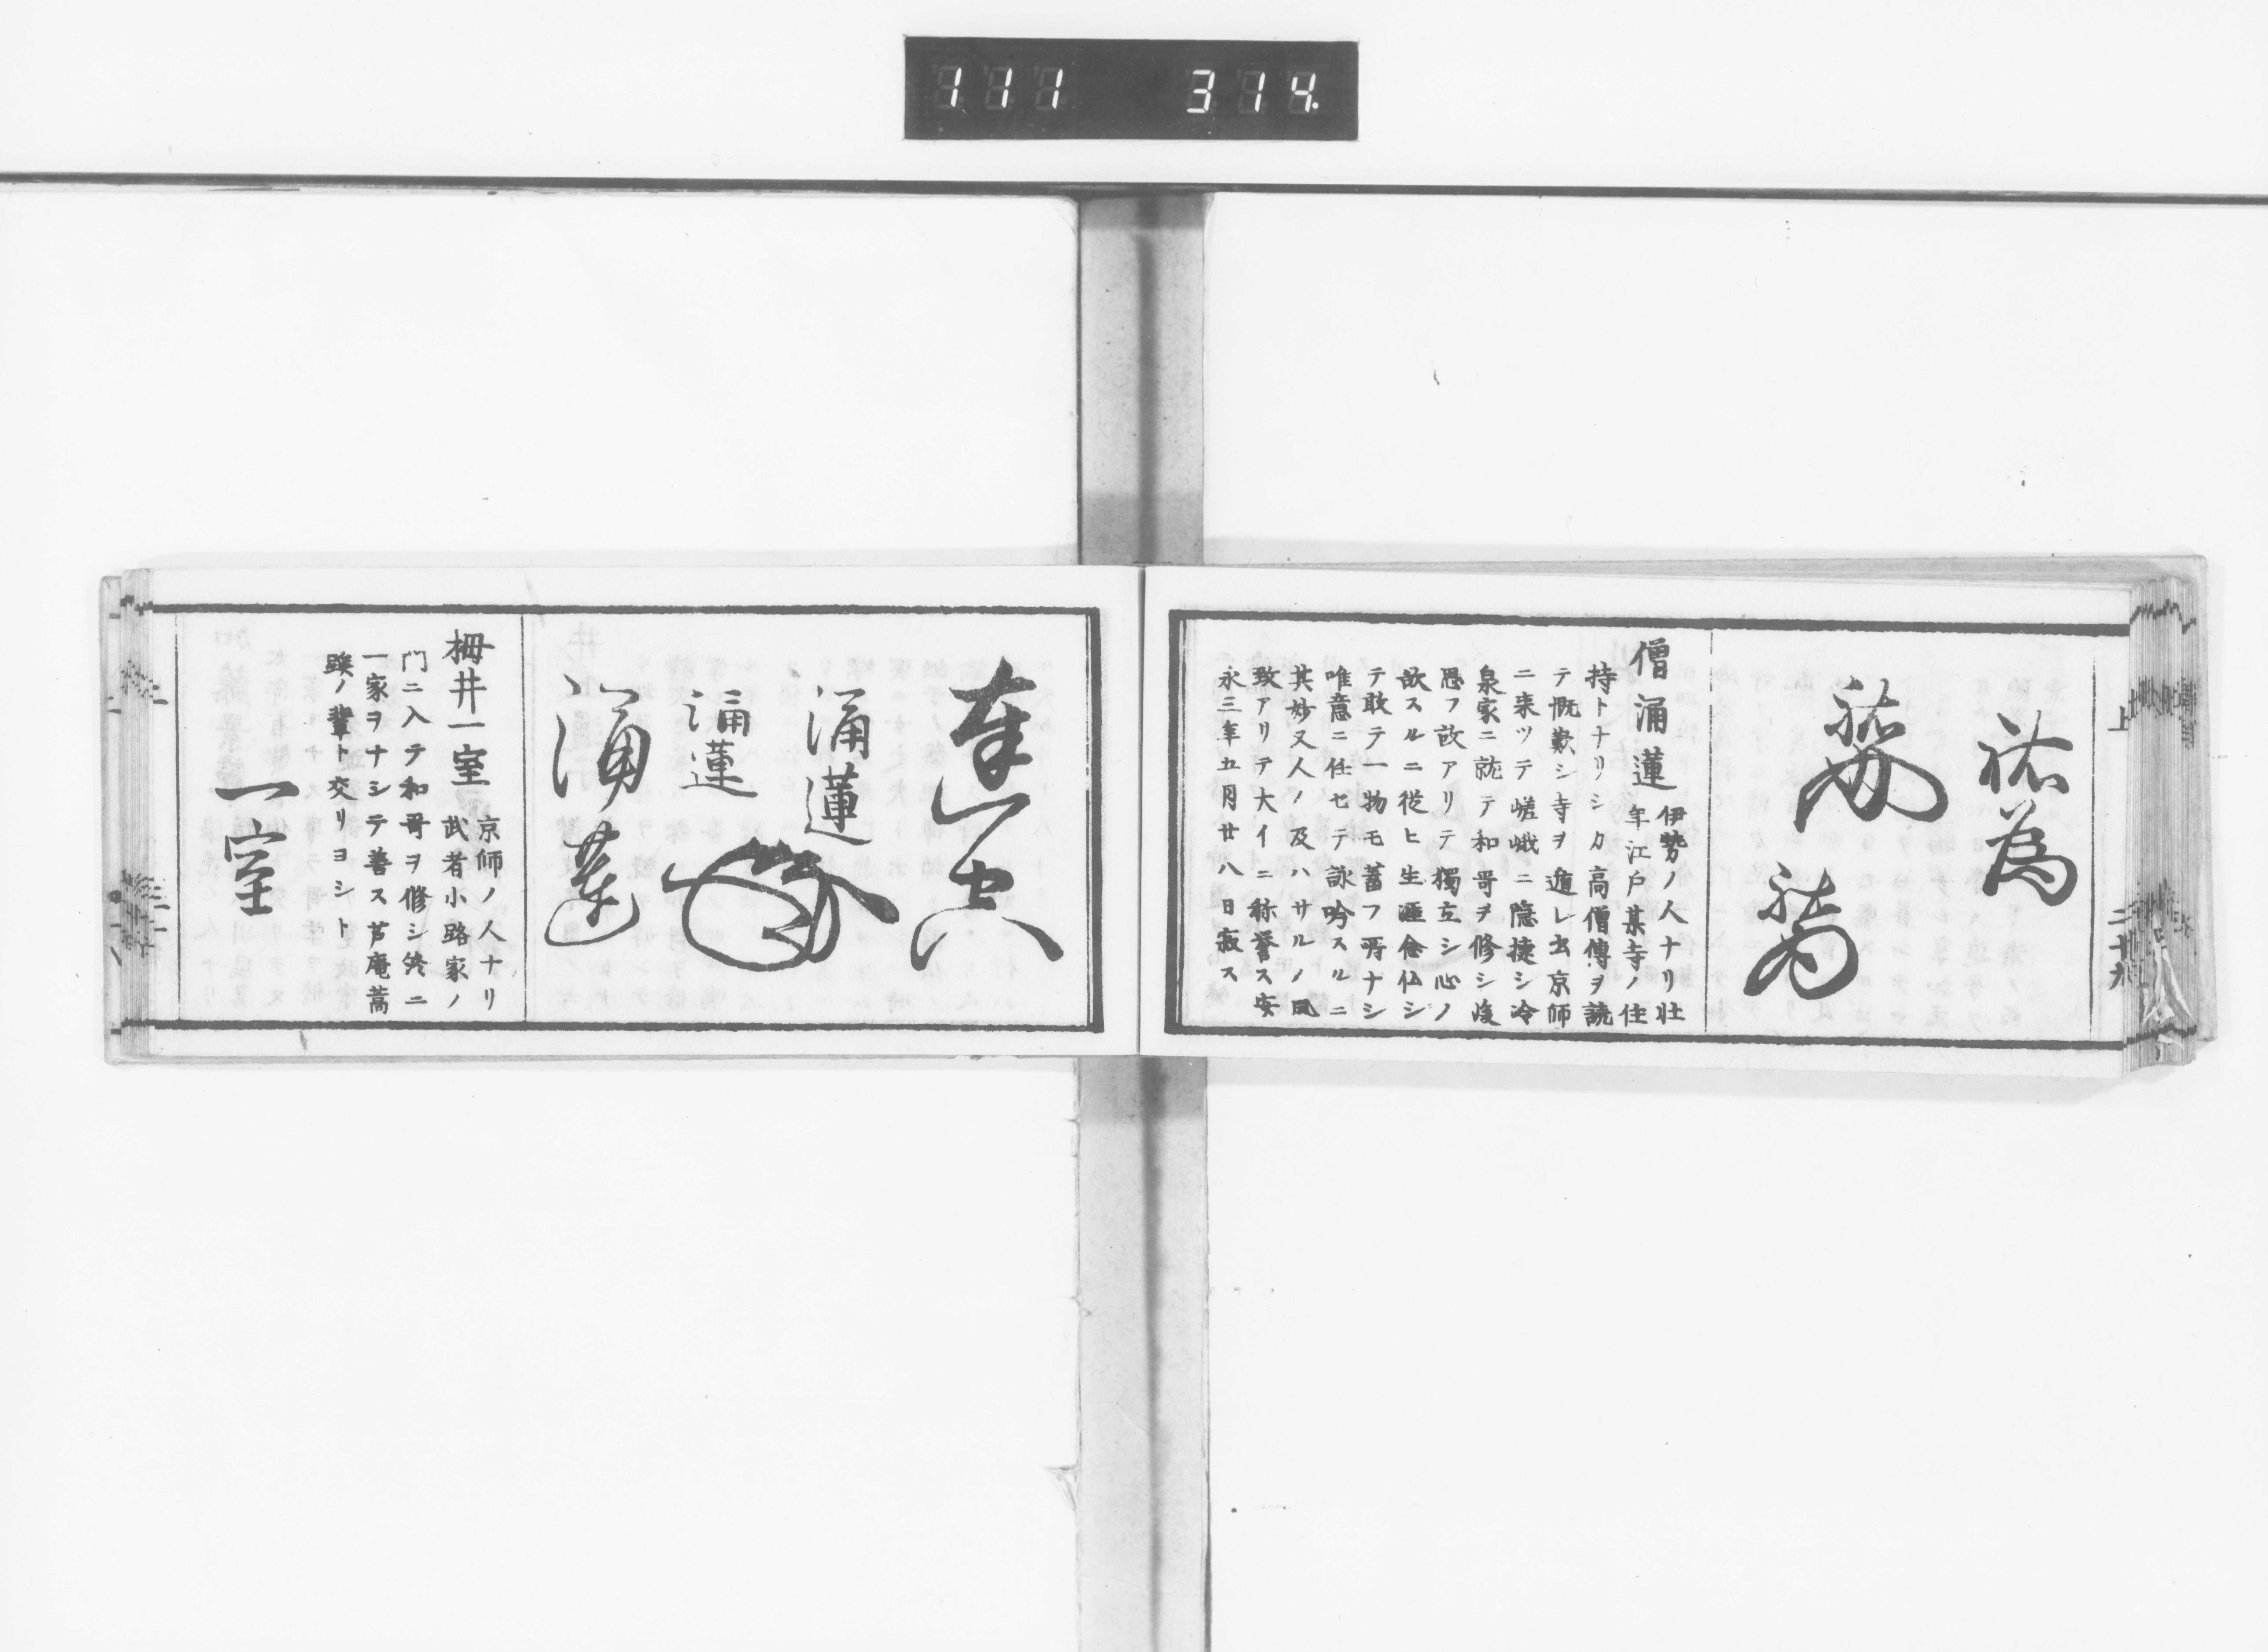 111 314.
上
二十九
祐為
祐為
僧涌蓮
伊勢ノ人ナリ壮
年江戸某寺ノ住
持トナリシカ高僧傳ヲ読
テ慨歎シ寺ヲ遁レ出京師
ニ来ツテ嵯峨ニ隠捿シ冷
泉家ニ就テ和哥ヲ修シ後
思フ故アリテ獨立シ心ノ
欲スルニ従ヒ生涯念仏シ
テ敢テ一物モ蓄フ所ナシ
唯意ニ任セテ詠吟スルニ
其妙又人ノ及ハサルノ風
致アリテ大イニ称誉ス安
永三年五月廿八日寂ス
涌蓮
涌蓮
涌蓮
栂井一室
京師ノ人ナリ
武者小路家ノ
门ニ入テ和哥ヲ修シ終ニ
一家ヲナシテ善ス芦庵蒿
蹊ノ輩ト交リヨシト
一室